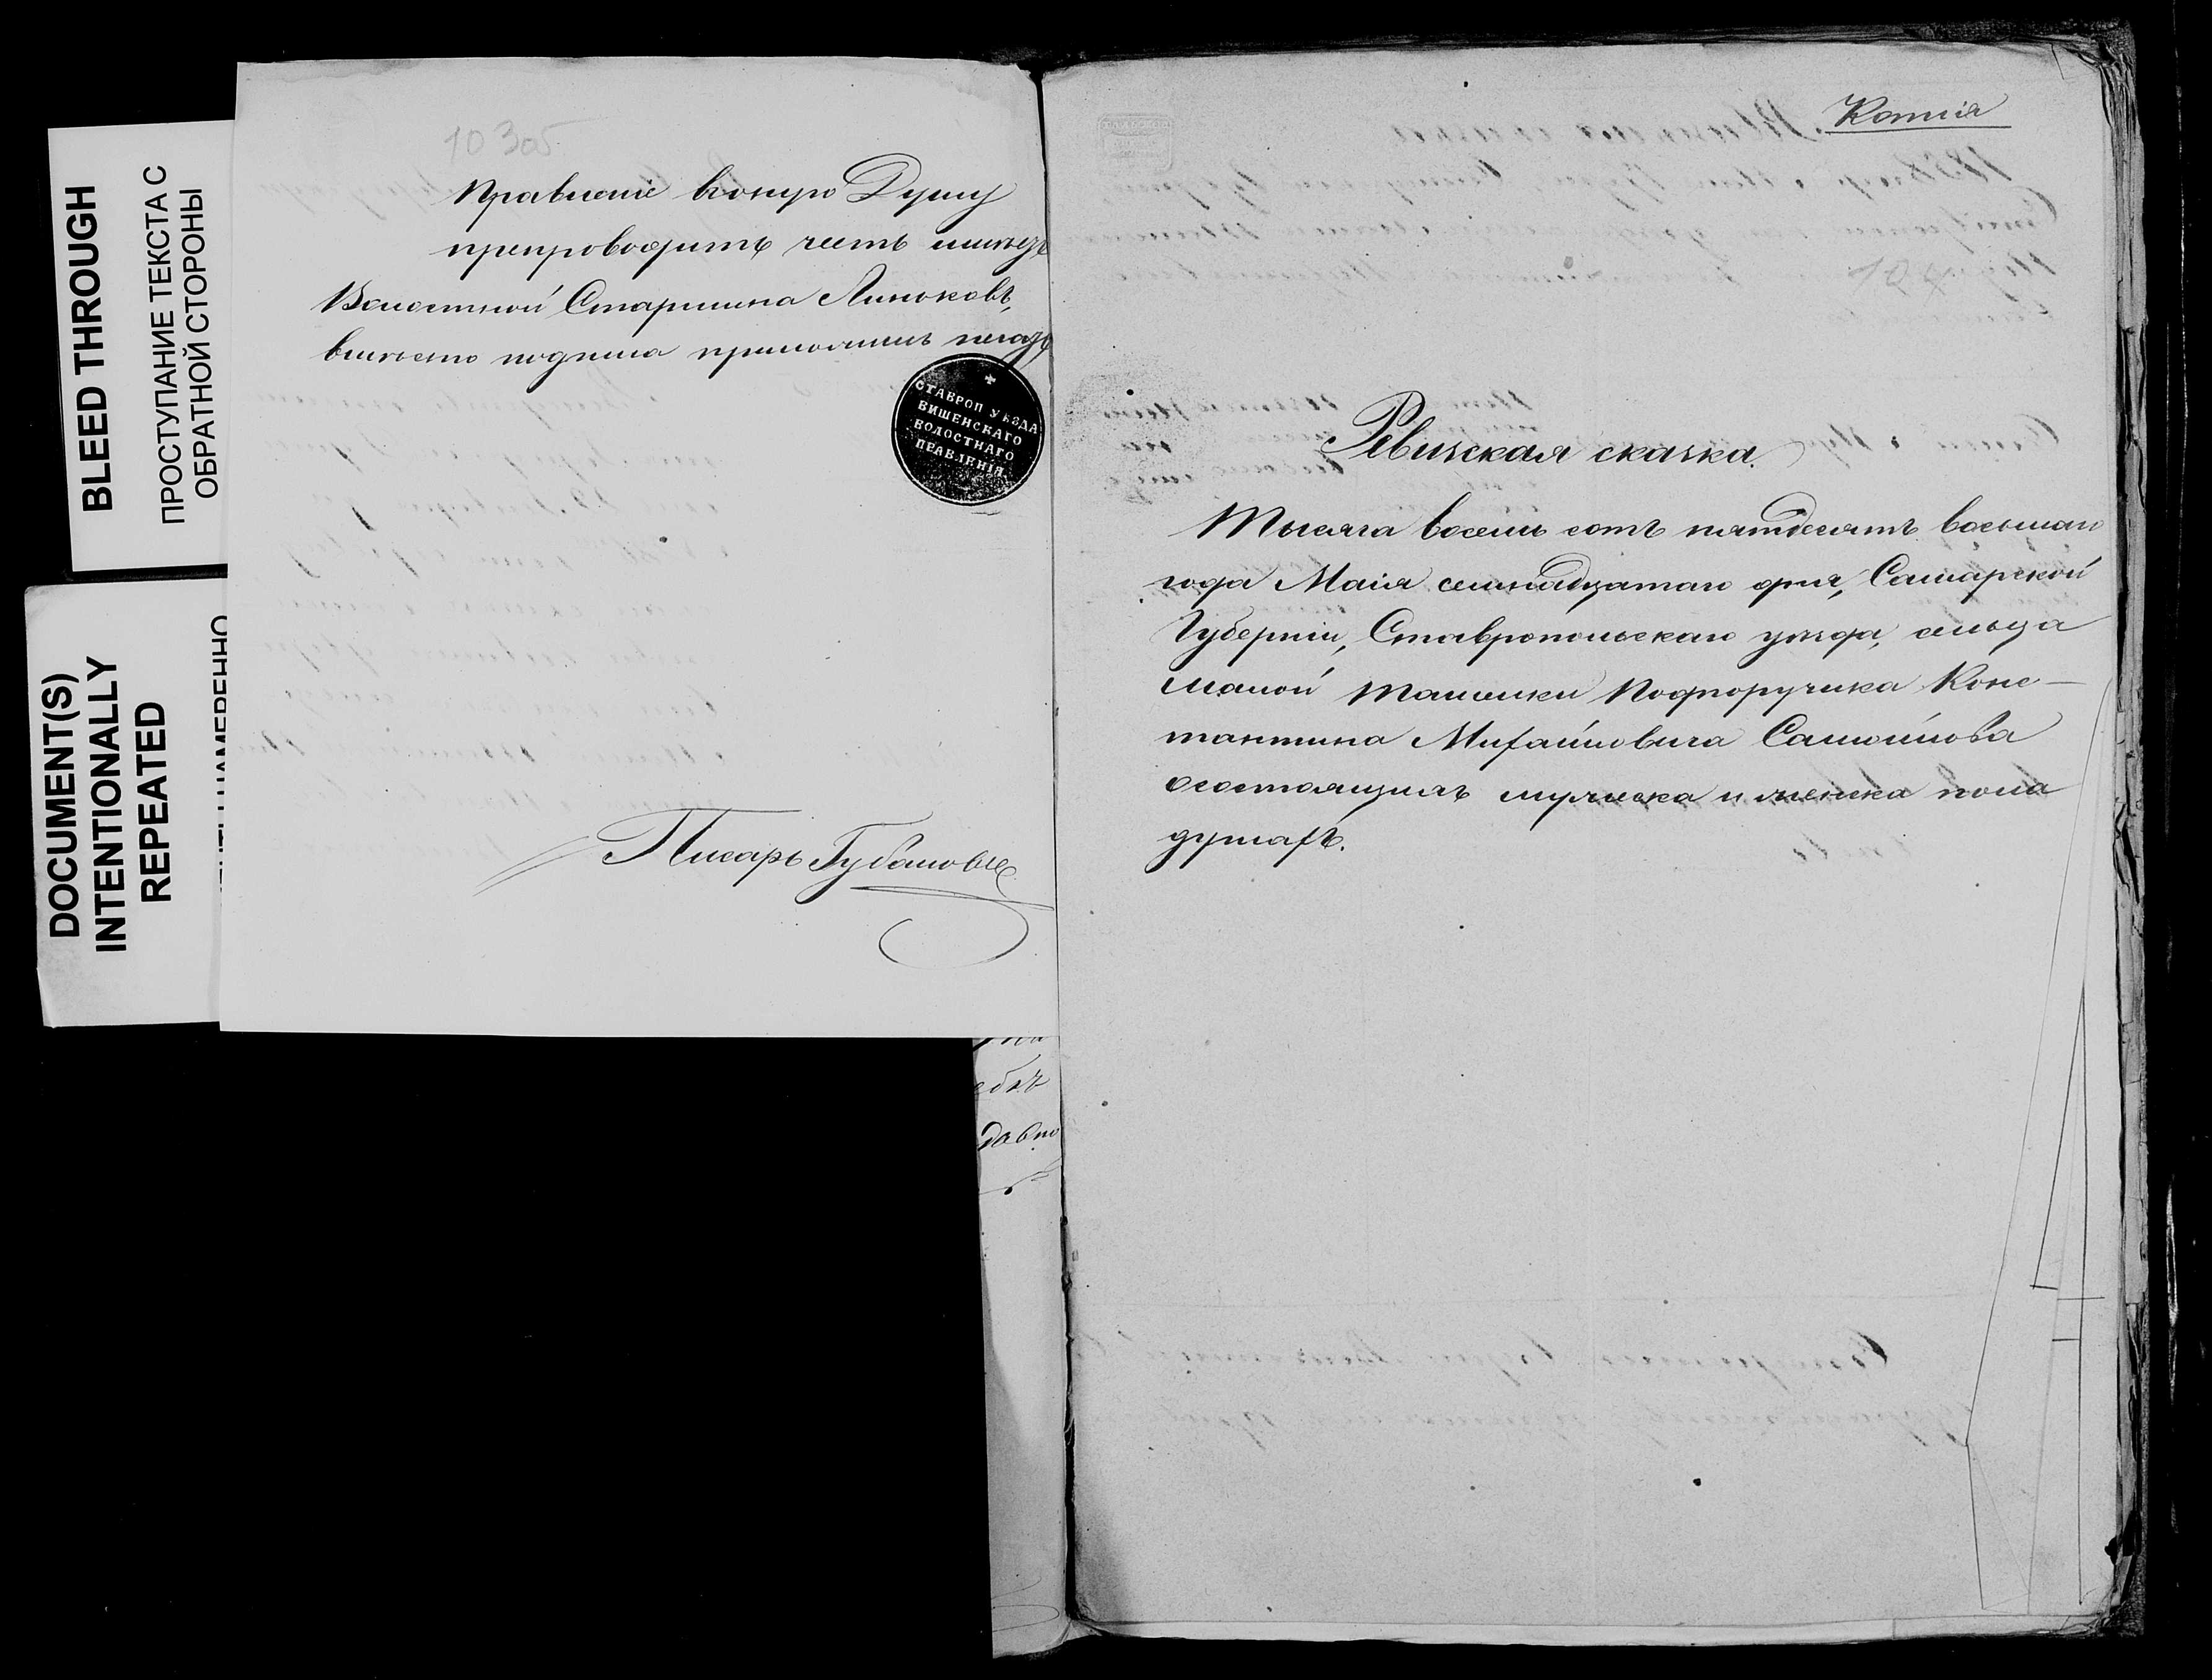 BLEED THROUGH
ПРОСТУПАНИЕ ТЕКСТА С
ОБРАТНОЙ СТОРОНЫ
DOCUMENT(S)
INTENTIONALLY
REPEATED
10 305
Правленіе воную Думу
препроводить честь имѣетъ
Волостной Старшина Линюковъ,
вмѣсто подписа приложилъ печать
СТАВРОП УѢЗДА
ВИШЕНСКАГО
ВОЛОСТНАГО
ПРАВЛЕНІЯ.
Писарь Губановъ
ебѣ
давно
Копія
Ревизская сказка.
Тысяча восемь сотъ пятдесятъ восьмаго
года Маія семнадцатаго дня, Самарской
Губерніи, Ставропольскаго уѣзда, сельца
малой Ташелки Подпоручика Конс-
тантина Михайловича Самойлова
осостоящихъ мужеска и женска пола
душахъ.